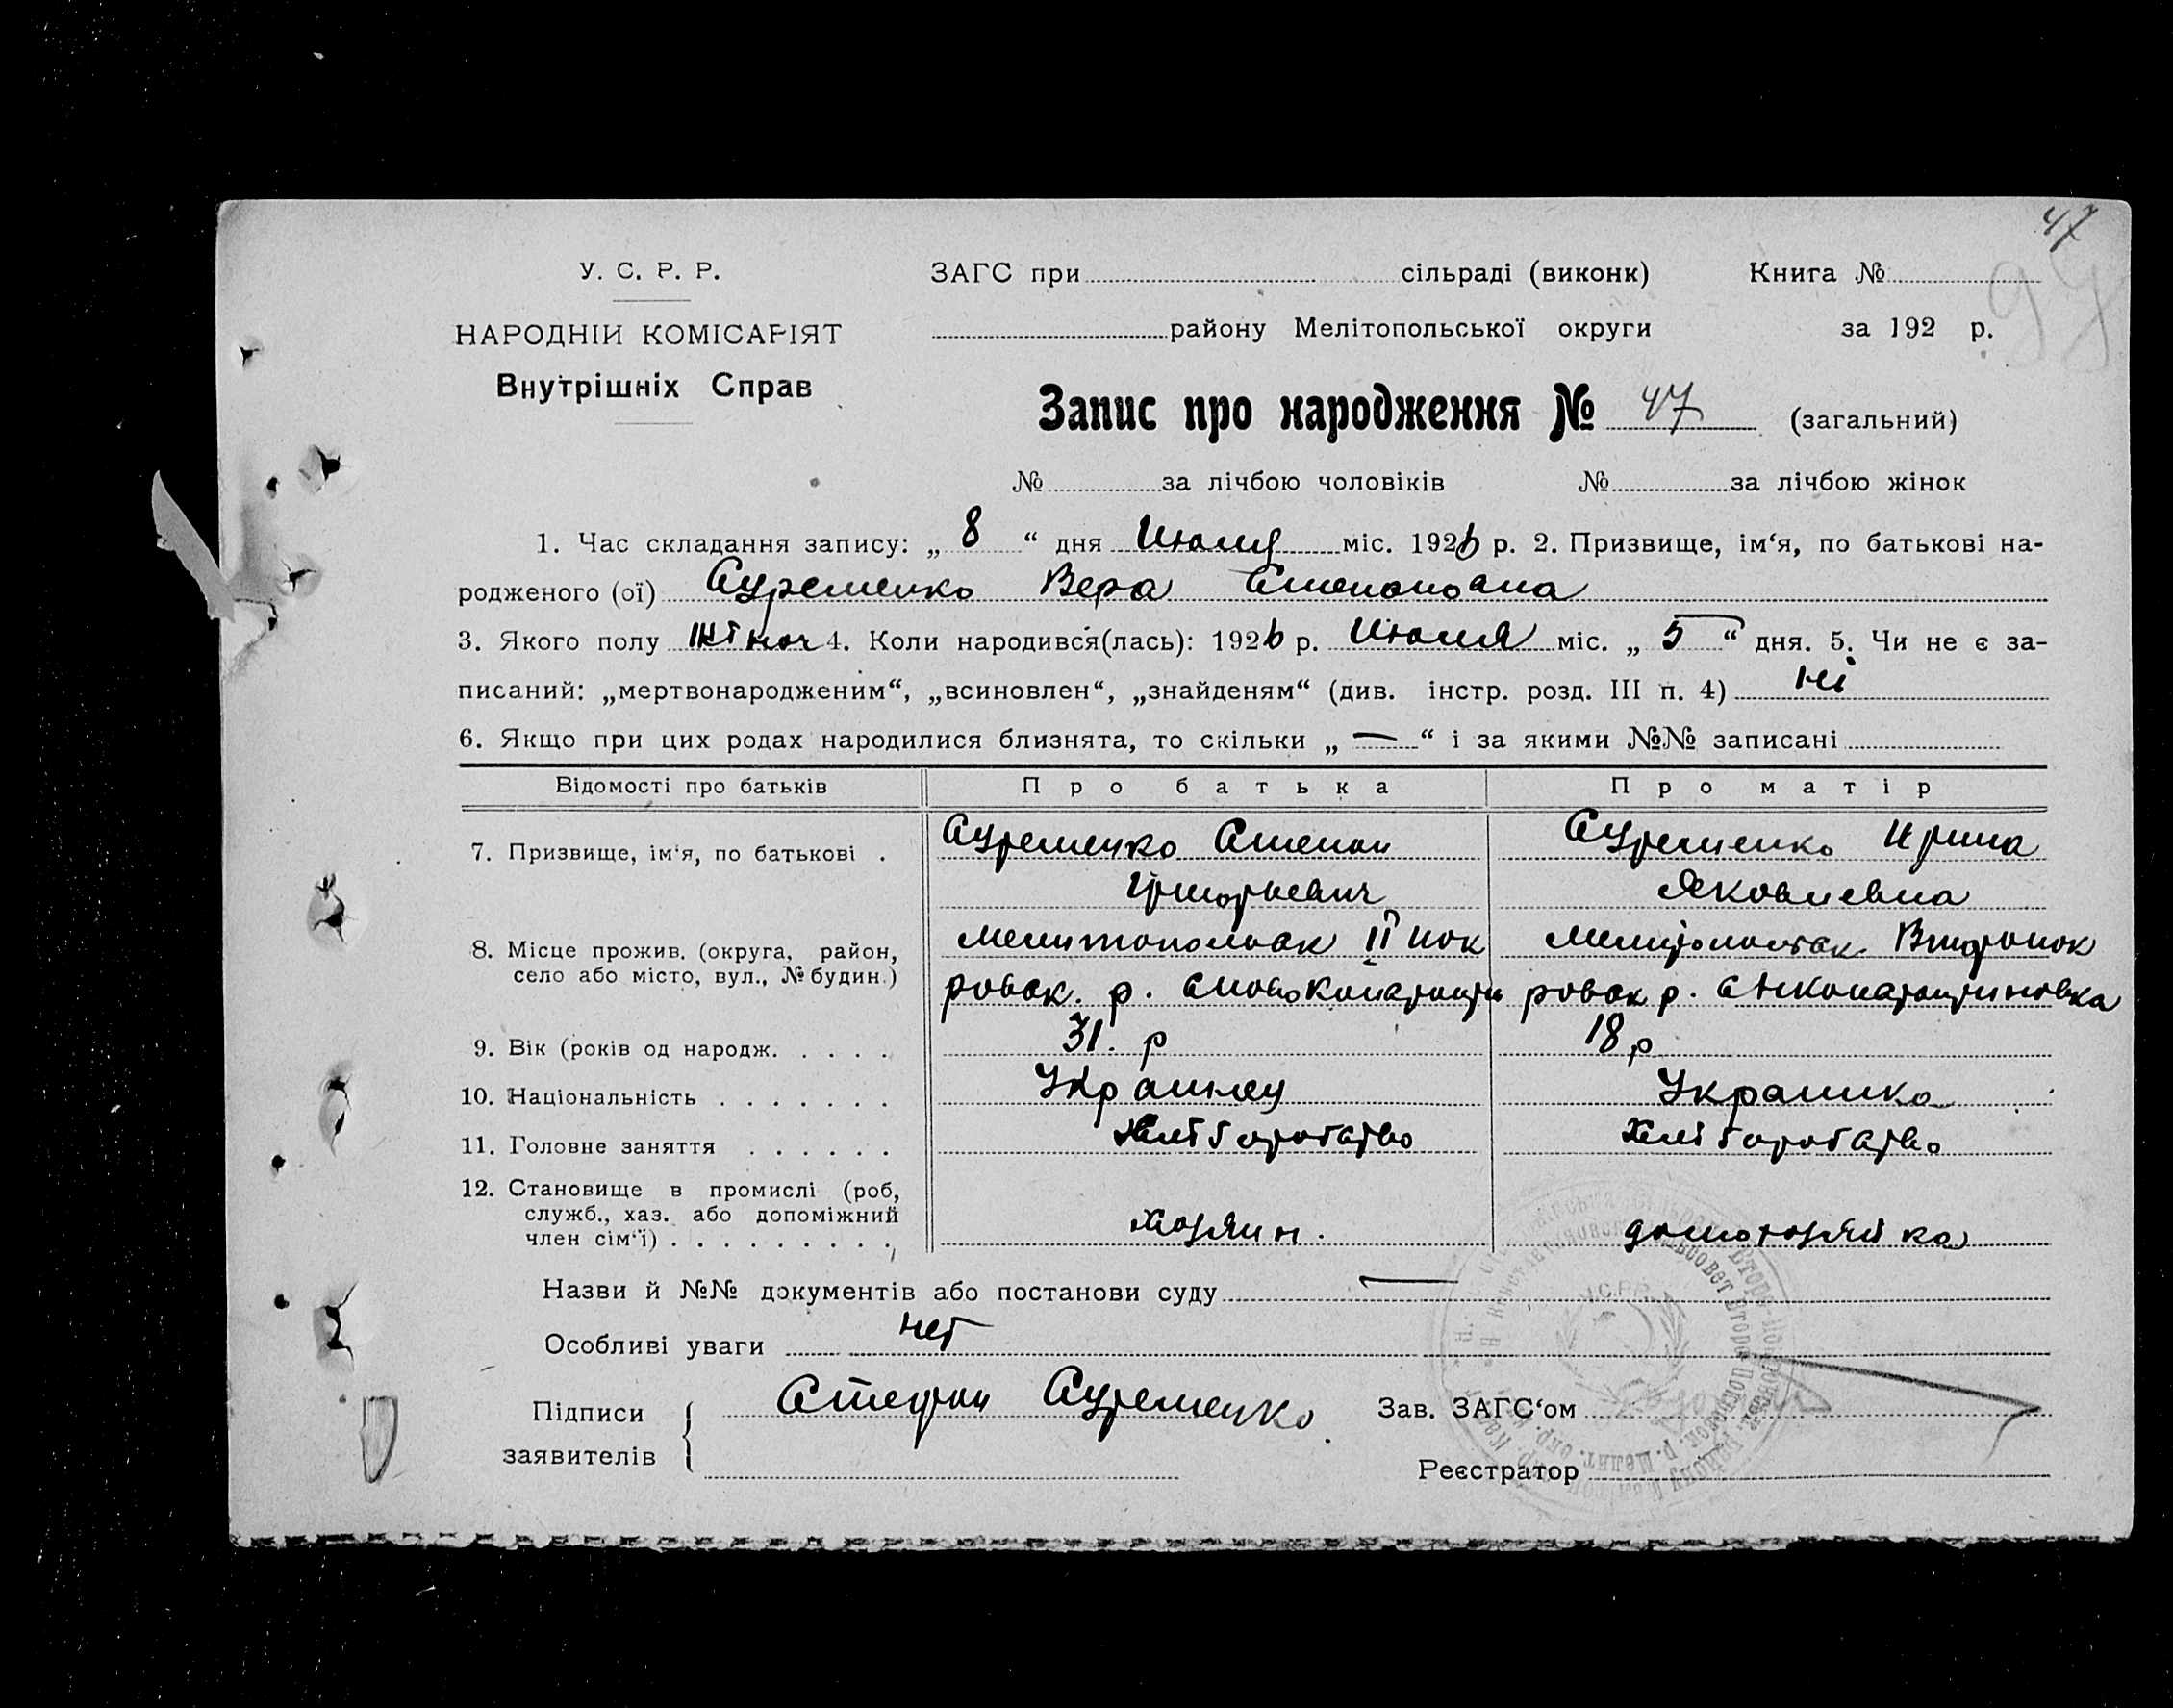 47
97
У. С. Р. Р.
ЗАГС при сільраді (виконк) Книга №
НАРОДНІЙ КОМІСАРІЯТ
району Мелітопольської округи за 192 р.
Внутрішніх Справ
Запис про народження № 47 (загальний)
№ за лічбою чоловіків № за лічбою жінок
1. Час складання запису: „ 8 “ дня Июля міс. 1926 р. 2. Призвище, ім‘я, по батькові на-
родженого (ої) Суременко Вера Степановна
3. Якого полу жіноч 4. Коли народився(лась): 1926 р. Июля міс. „ 5 “ дня. 5. Чи не є за-
писаний: „мертвонародженим“, „всиновлен“, „знайденям“ (див. інстр. розд. III п. 4) ні
6. Якщо при цих родах народилися близнята, то скільки „ — “ і за якими №№ записані
Відомості про батьків Про батька Про матір
7. Призвище, ім‘я, по батькові . Суременко Степан Суременко Ирина
Григорьевич Яковлевна
8. Місце прожив. (округа, район, Мелитопольск II пок Мелитопольск Второпок
село або місто, вул., № будин.) ровск. р. с Новоконстанти ровск р. с Нконстантиновка
9. Вік (років од народж. . . . . 31. р 18 р
10. Національність . . . . . . . Украинец Украинка
11. Головне заняття . . . . . . Хліборобство Хліборобство
12. Становище в промислі (роб,
служб., хаз. або допоміжний
член сім‘ї) . . . . . . . . . хозяин. домохозяйка
Назви й №№ документів або постанови суду —
Особливі уваги нет
Підписи Стефан Суременко. Зав. ЗАГС‘ом
заявителів
Реєстратор
У.С.Р.Р.